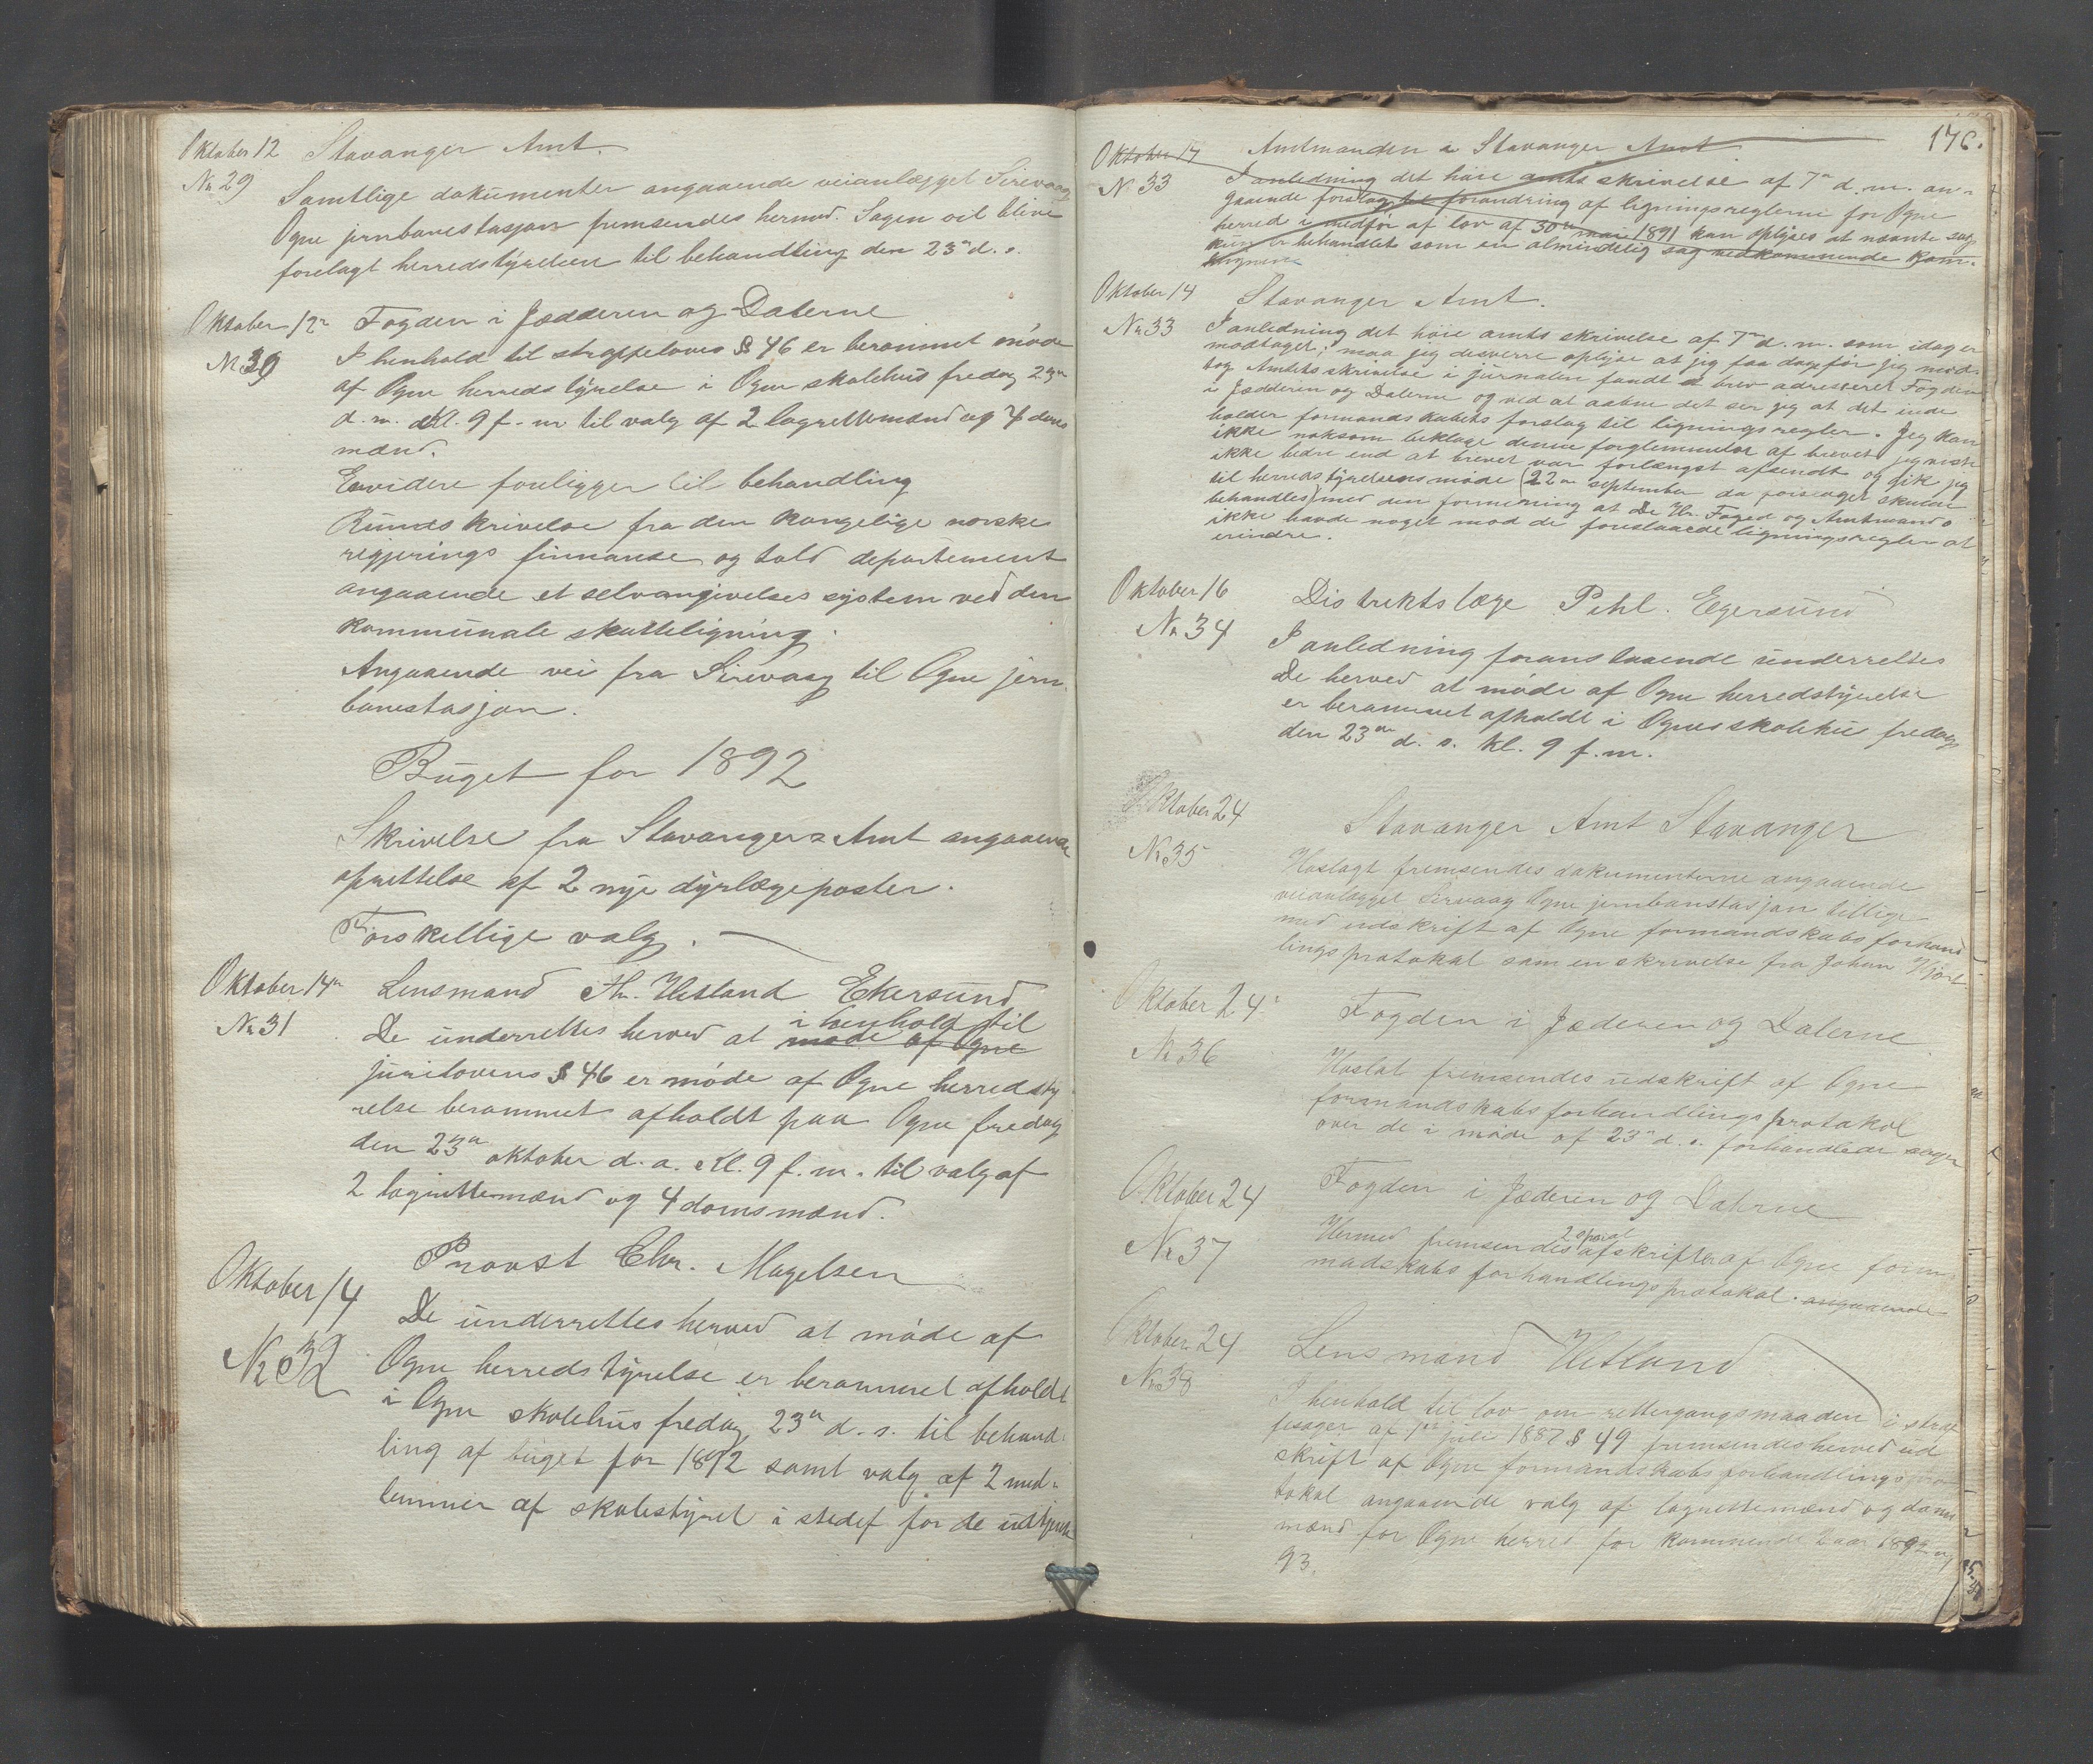 Oktober 12 Stavanger Amt.
No 29 Samtlige dokumenter angaaende veianlægget Sirevaag
Ogne jernbanestasjon fremsendes hermed. Sagen vil blive
forelagt herredstyrelsen til behandling den 23n d. s.
Oktober 12n Fogden i Jædderen og Dalerne
No 30 I henhold til straffelovens § 46 er berammet møde
af Ogne herredstyrelse i Ogne skolehus fredag 23n
d. m. kl. 9 f. m til valg af 2 lagrettemænd og 4 doms
mænd.
Envidere foreligger til behandling
Rundskrivelse fra den kongelige norske
regjerings finnanse og told departement
angaaende et selvangivelses system ved den
kommunale skatteligning.
Angaaende vei fra Sirevaag til Ogne jern
banestasjon.
Buget for 1892
Skrivelse fra Stavanger Amt angaaende
oprettelse af 2 nye dyrlægeposter.
Forskellige valg.
Oktober 14n Lensmand Th. Hetland Ekersund
No 31 De underrettes herved at møde af Ogne i henhold til
jurilovens § 46 er møde af Ogne herredsty
relse berammet afholdt paa Ogne fredag
den 23n oktober d. a. Kl. 9 f. m. til valg af
2 lagrettemænd og 4 domsmænd.
Provst Chr. Magelsen
Oktober 14 De underrettes herved at møde af
No 32 Ogne herredstyrelse er berammet afholdt
i Ogne skolehus fredag 23n d. s. til behand
ling af buget for 1892 samt valg af 2 med-
lemmer af skolestyret i stedet for de udtjente
176.
Oktober 14 Amtmanden i Stavanger Amt
No 33 I anledning det høie amts skrivelse af 7n d. m. an-
gaaende forslag til forandring af ligningsreglerne for Ogne
herred i medfør af lov af 30te mai 1891 kan oplyses at nævnte sag
kun er behandlet som en almindelig sag vedkommende kom-
Oktober 14 Stavanger Amt.
No 33 I anledning det høie amts skrivelse af 7n d. m. som idag er
modtaget, maa jeg desverre oplyse at jeg faa dage før jeg mod-
tog Amtets skrivelse i jurnalen fandt brev adresseret Fogden
i Jædderen og Dalerne og ved at aabne det ser jeg at det inde
holder formandskabets forslag til ligningsregler. Jeg kan
ikke noksom beklage denne forglemmelse af brevet jeg viste
ikke bedre end at brevet var forlængst afsendt og gik jeg
til herredstyrelsens møde (22n september da skulde
behandles) med den formening at De Hr. Foged og Amtmand
ikke havde noget mod de foreslaaede ligningsregler at
erindre.
Oktober 16 Distriktslæge Pihl. Egersund
No 34 I anledning foranstaaende underrettes
De herved at møde af Ogne herredstyrelse
er berammet afholdt i Ognes skolehus fredag
den 23n d. s. kl. 9 f. m.
Oktober 24 Stavanger Amt Stavanger
No 35 Hoslagt fremsendes dokumenterne angaaende
veianlægget Sirevaag Ogne jernbanstasjon tillige
med udskrift af Ogne formandskabs forhand
lingsprotokol sam en skrivelse fra Johan Hjort
Oktober 24. Fogden i Jæderen og Dalerne
No 36 Hoslat fremsendes udskrift af Ogne
formandskabs forhandlings protokol
over de i møde af 23n d. s. forhandlede sager
Oktober 24 Fogden i Jæderen og Dalerne
No 37 Hermed fremsendes afskrifter af Ogne form
madskabs forhandlingsprotokol. angaaende
Oktober 24 Lensmand Hetland
No 38 I henhold til lov om rettergangsmaaden i straf
fesager af 1ste juli 1887 § 49 fremsendes herved ud
skrift af Ogne formandskabs forhandlingspro
tokol angaaende valg af lagrettemænd og doms
mænd for Ogne herred for kommende 2 aar 1892 og
93.